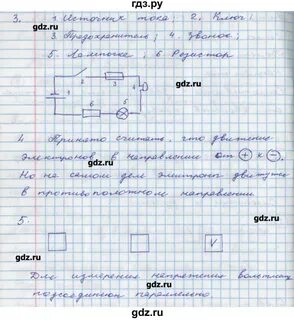 гдз.ру
3. 1. Источник тока; 2. Ключ;
3. Предохранитель; 4. Звонок;
5. Лампочка; 6. Резистор
1
2
3
4
6
5
4 Принято считать, что движение
электронов в направлении от + к -.
Но на самом деле электроны движутся
в противоположном направлении.
5.
V
Для измерения напряжения вольтметр
подсоединяют параллельно.
гдз.ру